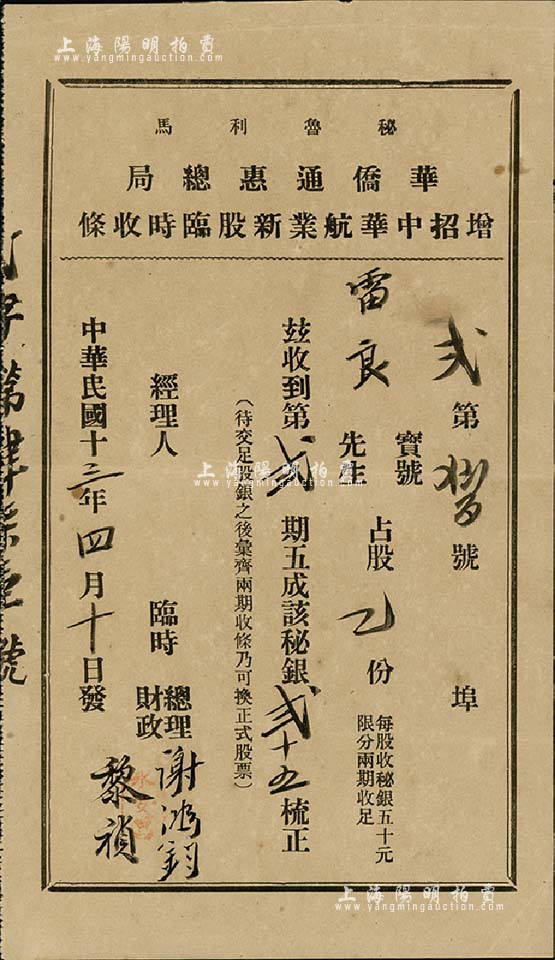 上海陽明拍賣
www.yangmingauction.com
秘魯利馬
華僑通惠總局
增招中華航業新股臨時收條
弍 第 號 埠
雷良 寶號 先生 占股 乙 份
每股收秘銀五十元
限分兩期收足
玆收到第 弍 期五成該秘銀 弍十五 梳正
（待交足股銀之後彙齊兩期收條乃可換正式股票）
經理人 臨時 總理 財政 謝鴻釗 黎禎
中華民國十三年四月十日發
上海陽明拍賣
www.yangmingauction.com
上海陽明拍賣
www.yangmingauction.com